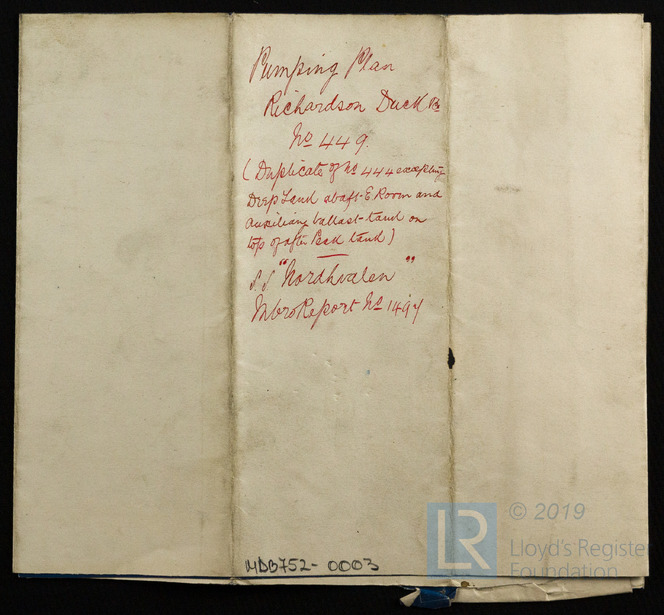 Pumping Plan
Richardson Duck &
No 449.
(Duplicate of No 444 excepting
Deep Tank abaft E Room and
auxiliary ballast-tank on
top of after Peak tank)
S.S "Nordhvalen"
Mbro Report No
MDB752-0003
LR
© 2019
Lloyd's Register
Foundation